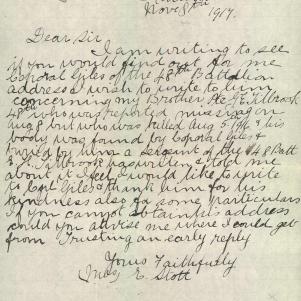 Nov 8th 1917.
Dear Sir
I am writing to see
if you would find out for me
Corporal Giles of the 48th Battalion
address wish to write to him
concerning my Brother Pte Tilbrook
48th who was reported missing on
Aug 8 but who was killed Aug 5 1916 his
body was found by Corporal Giles &
buried by him a sergeant of the 48 Batt
Tilbrook has written & told me
about it I feel I would like to write
to Corpl Giles & thank him for his
kindness also for some particulars
If you cannot obtain his address
could you advise me where I could get
from Trusting an early reply
Yours Faithfully
E. Stott